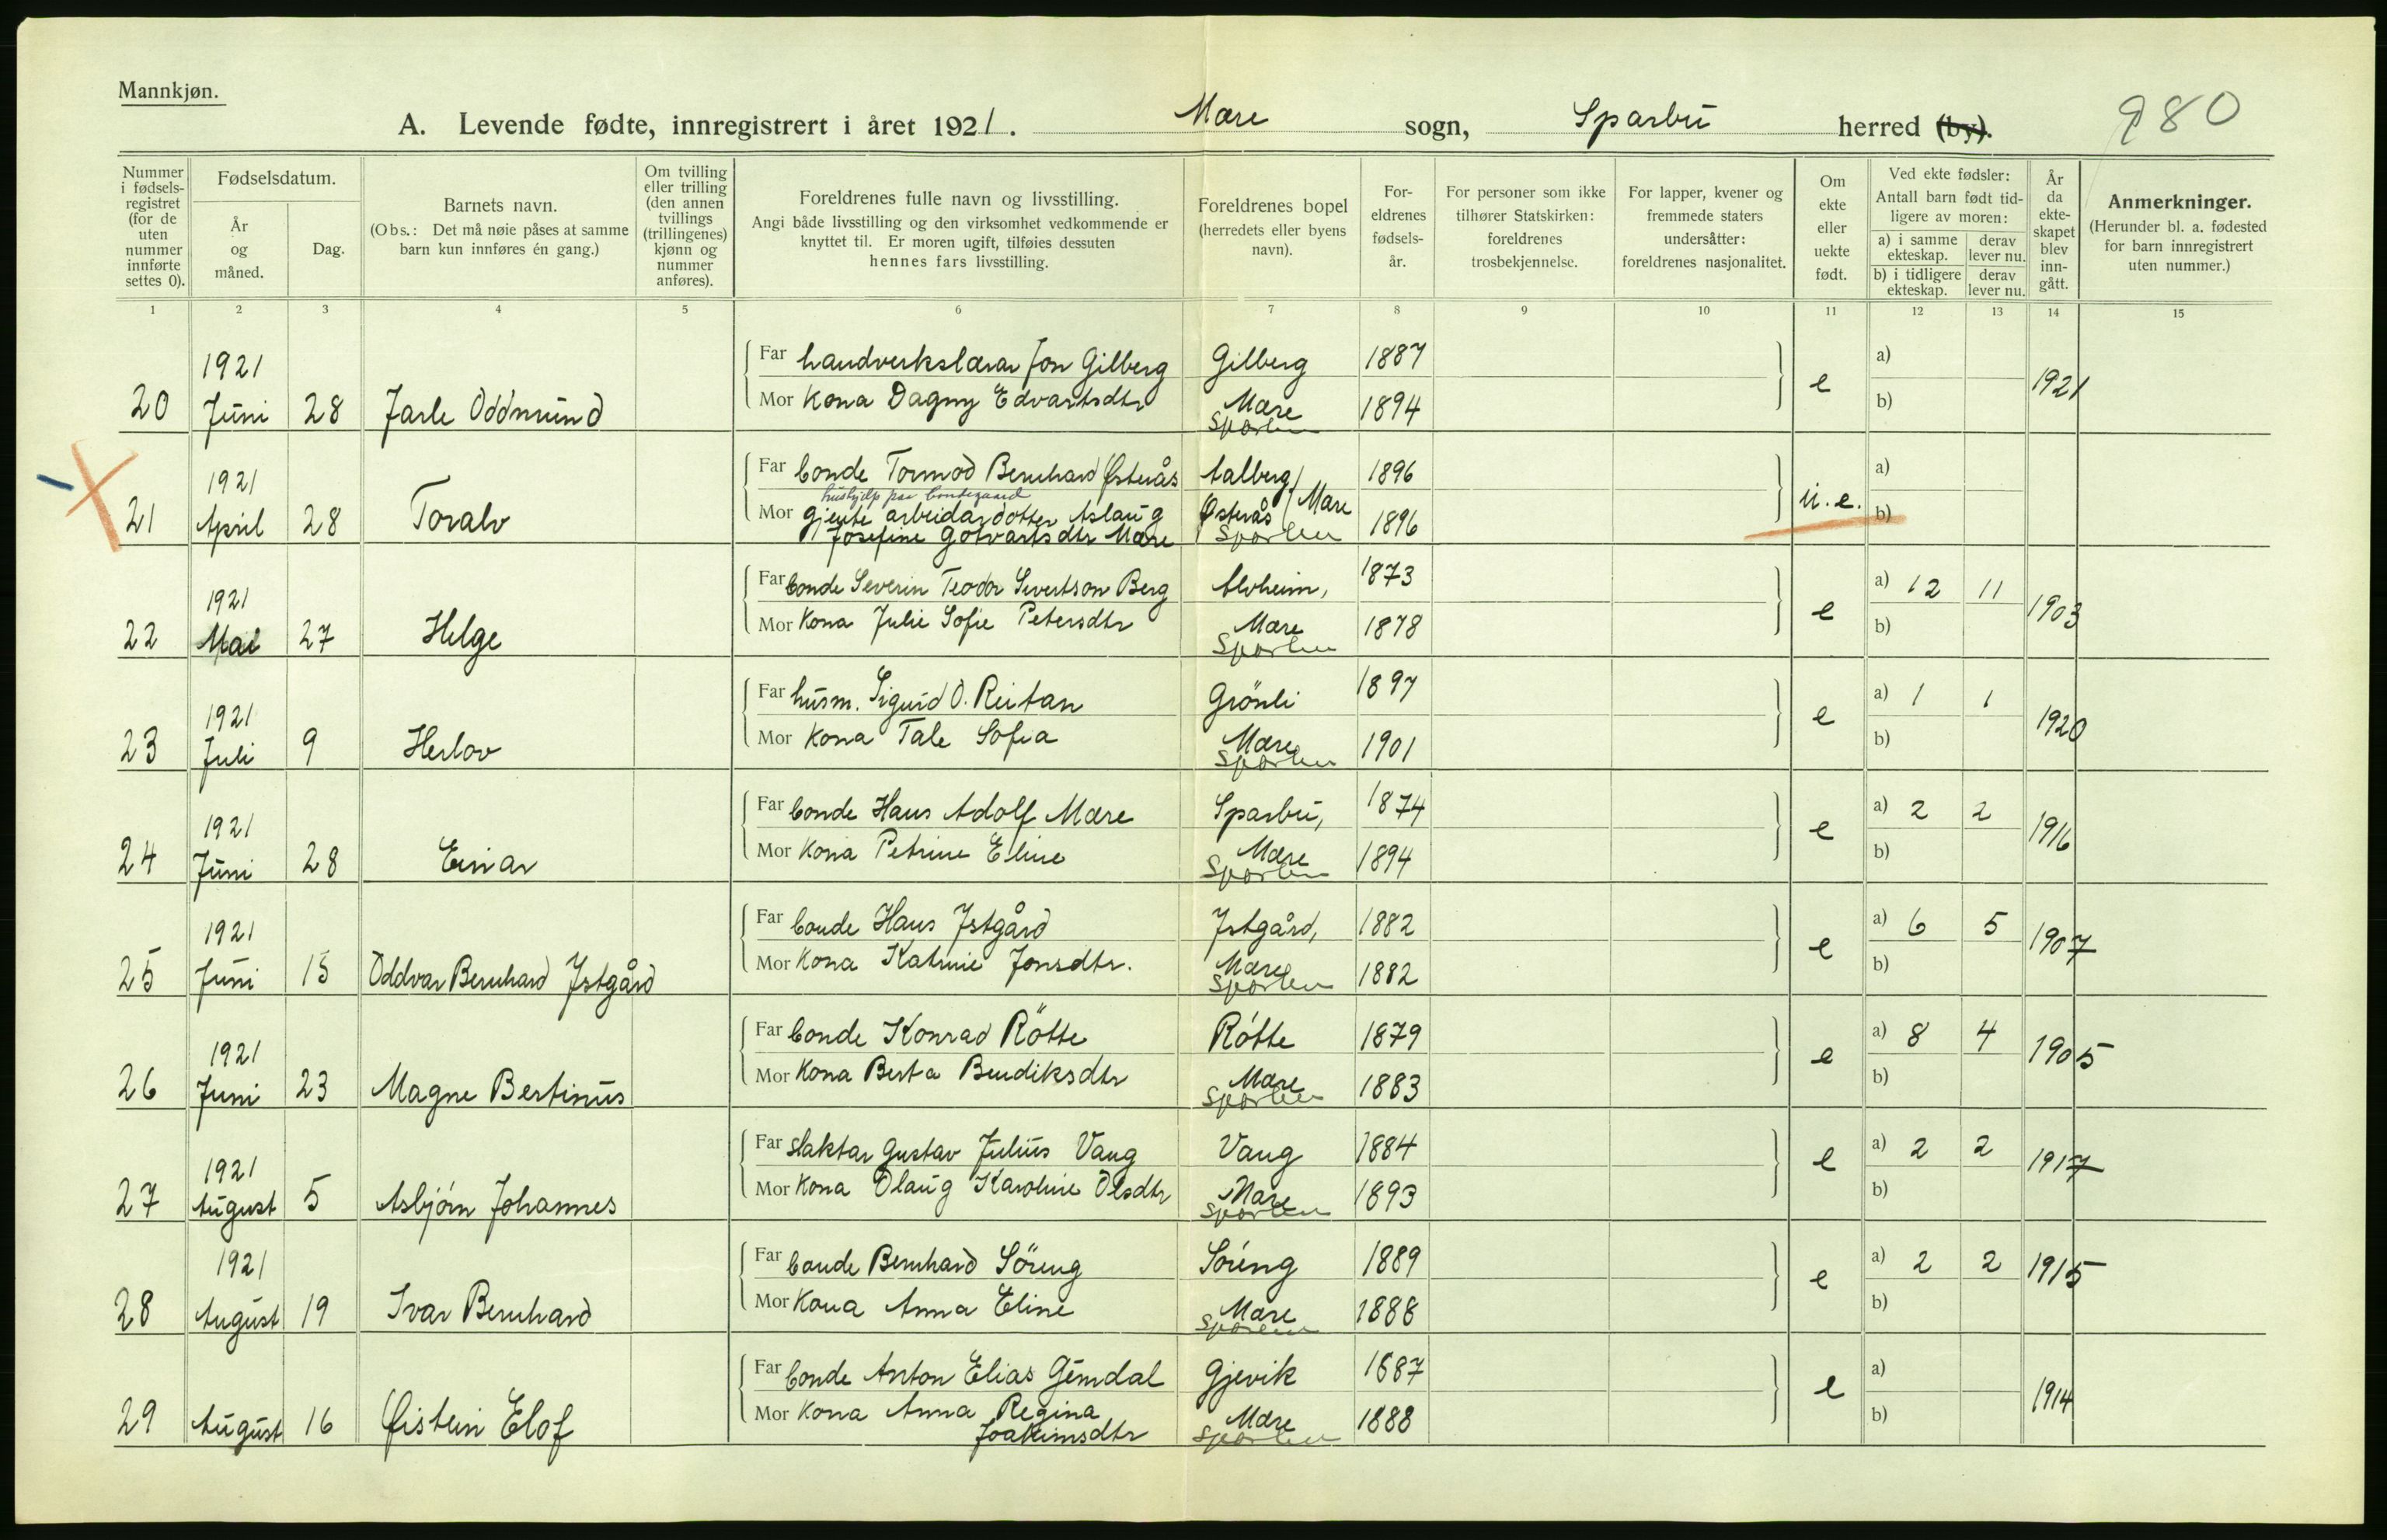 Mannkjøn.
A. Levende fødte, innregistrert i året 1921. Mære sogn, Sparbu herred (by).
980
Nummer i fødsels-registret (for de uten nummer innførte settes 0).
Fødselsdatum.
År og måned.
Dag.
Barnets navn.
(Obs.: Det må nøie påses at samme barn kun innføres én gang.)
Om tvilling eller trilling (den annen tvillings (trillingenes) kjønn og nummer anføres).
Foreldrenes fulle navn og livsstilling.
Angi både livsstilling og den virksomhet vedkommende er knyttet til. Er moren ugift, tilføies dessuten hennes fars livsstilling.
Foreldrenes bopel (herredets eller byens navn).
For-eldrenes fødsels-år.
For personer som ikke tilhører Statskirken: foreldrenes trosbekjennelse.
For lapper, kvener og fremmede staters undersåtter: foreldrenes nasjonalitet.
Om ekte eller uekte født.
Ved ekte fødsler:
Antall barn født tid-ligere av moren:
a) i samme ekteskap.
derav lever nu.
b) i tidligere ekteskap.
derav lever nu.
År da ekte-skapet blev inn-gått.
Anmerkninger.
(Herunder bl. a. fødested for barn innregistrert uten nummer.)
1 2 3 4 5 6 7 8 9 10 11 12 13 14 15
1921
Far handverkslærar Jon Gilberg Gilberg 1887 a)
20 Juni 28 Jarle Oddmund e 1921
Mor Kona Dagny Edvartsdtr Mære 1894 b)
Sparbu
1921
Far bonde Tormod Bernhard Østerås Aalberg 1896 a)
hushjelp paa bondegaard
21 April 28 Toralv u. e.
Mor gjente arbeidardotter Aslaug Østerås Mære 1896 b)
Josefine Gotvartsdtr Mære Sparbu
1921
Far bonde Severin Teodor Sivertson Berg Alvheim, 1873 a) 12 11
22 Mai 27 Helge e 1903
Mor Kona Julie Sofie Petersdtr Mære 1878 b)
Sparbu
1921
Far husm. Sigurd O. Reitan Grönli 1897 a) 1 1
23 Juli 9 Herlov e 1920
Mor Kona Tale Sofia Mære 1901 b)
Sparbu
1921
Far bonde Hans Adolf Mære Sparbu, 1874 a) 2 2
24 Juni 28 Einar e 1916
Mor Kona Petrine Eline Mære 1894 b)
Sparbu
1921
Far bonde Hans Istgård Istgård, 1882 a) 6 5
25 Juni 15 Oddvar Bernhard Istgård e 1907
Mor Kona Katrine Jonsdtr. Mære 1882 b)
Sparbu
1921
Far bonde Konrad Rötte Rótte 1879 a) 8 4
26 Juni 23 Magne Bertinus e 1905
Mor Kona Berta Bendiksdtr Mære 1883 b)
Sparbu
1921
Far slaktar Gustav Julius Vang Vang 1884 a) 2 2
27 August 5 Asbjörn Johannes e 1917
Mor Kona Olaug Karoline Olsdtr Mære 1893 b)
Sparbu
1921
Far bonde Bernhard Söreng Söreng 1889 a) 2 2
28 August 19 Ivar Bernhard e 1915
Mor Kona Anna Eline Mære 1888 b)
Sparbu
Far bonde Anton Elias Gemdal Gjevik 1887 a)
29 August 16 Øistein Elof e 1914
Mor Kona Anna Regina Mære 1888 b)
Joakimsdtr Sparbu